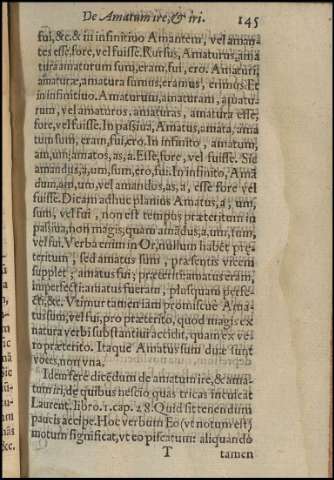 De Amatum ire, & iri. 145
fui, &c. & in infinitiuo Amantem, vel aman-
tes esse, fore, vel fuisse. Rursus, Amaturus, ama
tura amaturum sum, eram, fui, ero. Amaturi,
amaturæ, amatura sumus, eramus, erimus. Et
in infinitiuo. Amaturum, amaturam, amatu-
rum, vel amaturos, amaturas, amatura esse,
fore, vel fuisse. In passiua, Amatus, amata, ama
tum sum, eram, fui, ero. In infinito, amatum,
am, um, amatos, as, a. Esse, fore, vel fuisse. Sic
amandus, a, um, sum, ero, fui. In infinito, Amā
dum, am, um, vel amandos, as, a, esse fore vel
fuisse. Dicam adhuc planius Amatus, a, um,
sum, vel fui, non est tempus præteritum in
passiua, non magis, quam amādus, a, um, sum,
vel fui. Verba enim in Or, nullum habēt præ-
teritum, sed amatus sum, præsentis vicem
supplet, amatus fui, præteriti: amatus eram,
imperfecti: amatus fueram, plusquam perfe-
cti, &c. Vtimur tamen iam promiscuè Ama-
tus sum, vel fui, pro præterito, quod magis ex
natura verbi substantiui accidit, quam ex ve-
ro præterito. Itaque Amatus sum duæ sunt
voces, non vna.
Idem ferè dicēdum de amatum ire, & ama-
tum iri, de quibus nescio quas tricas intulcat
Laurent. libro. 1. cap. 28. Quid sit tenendum
paucis accipe. Hoc verbum Eo (vt notum est)
motum significat, vt eo piscatum: aliquando
T tamen